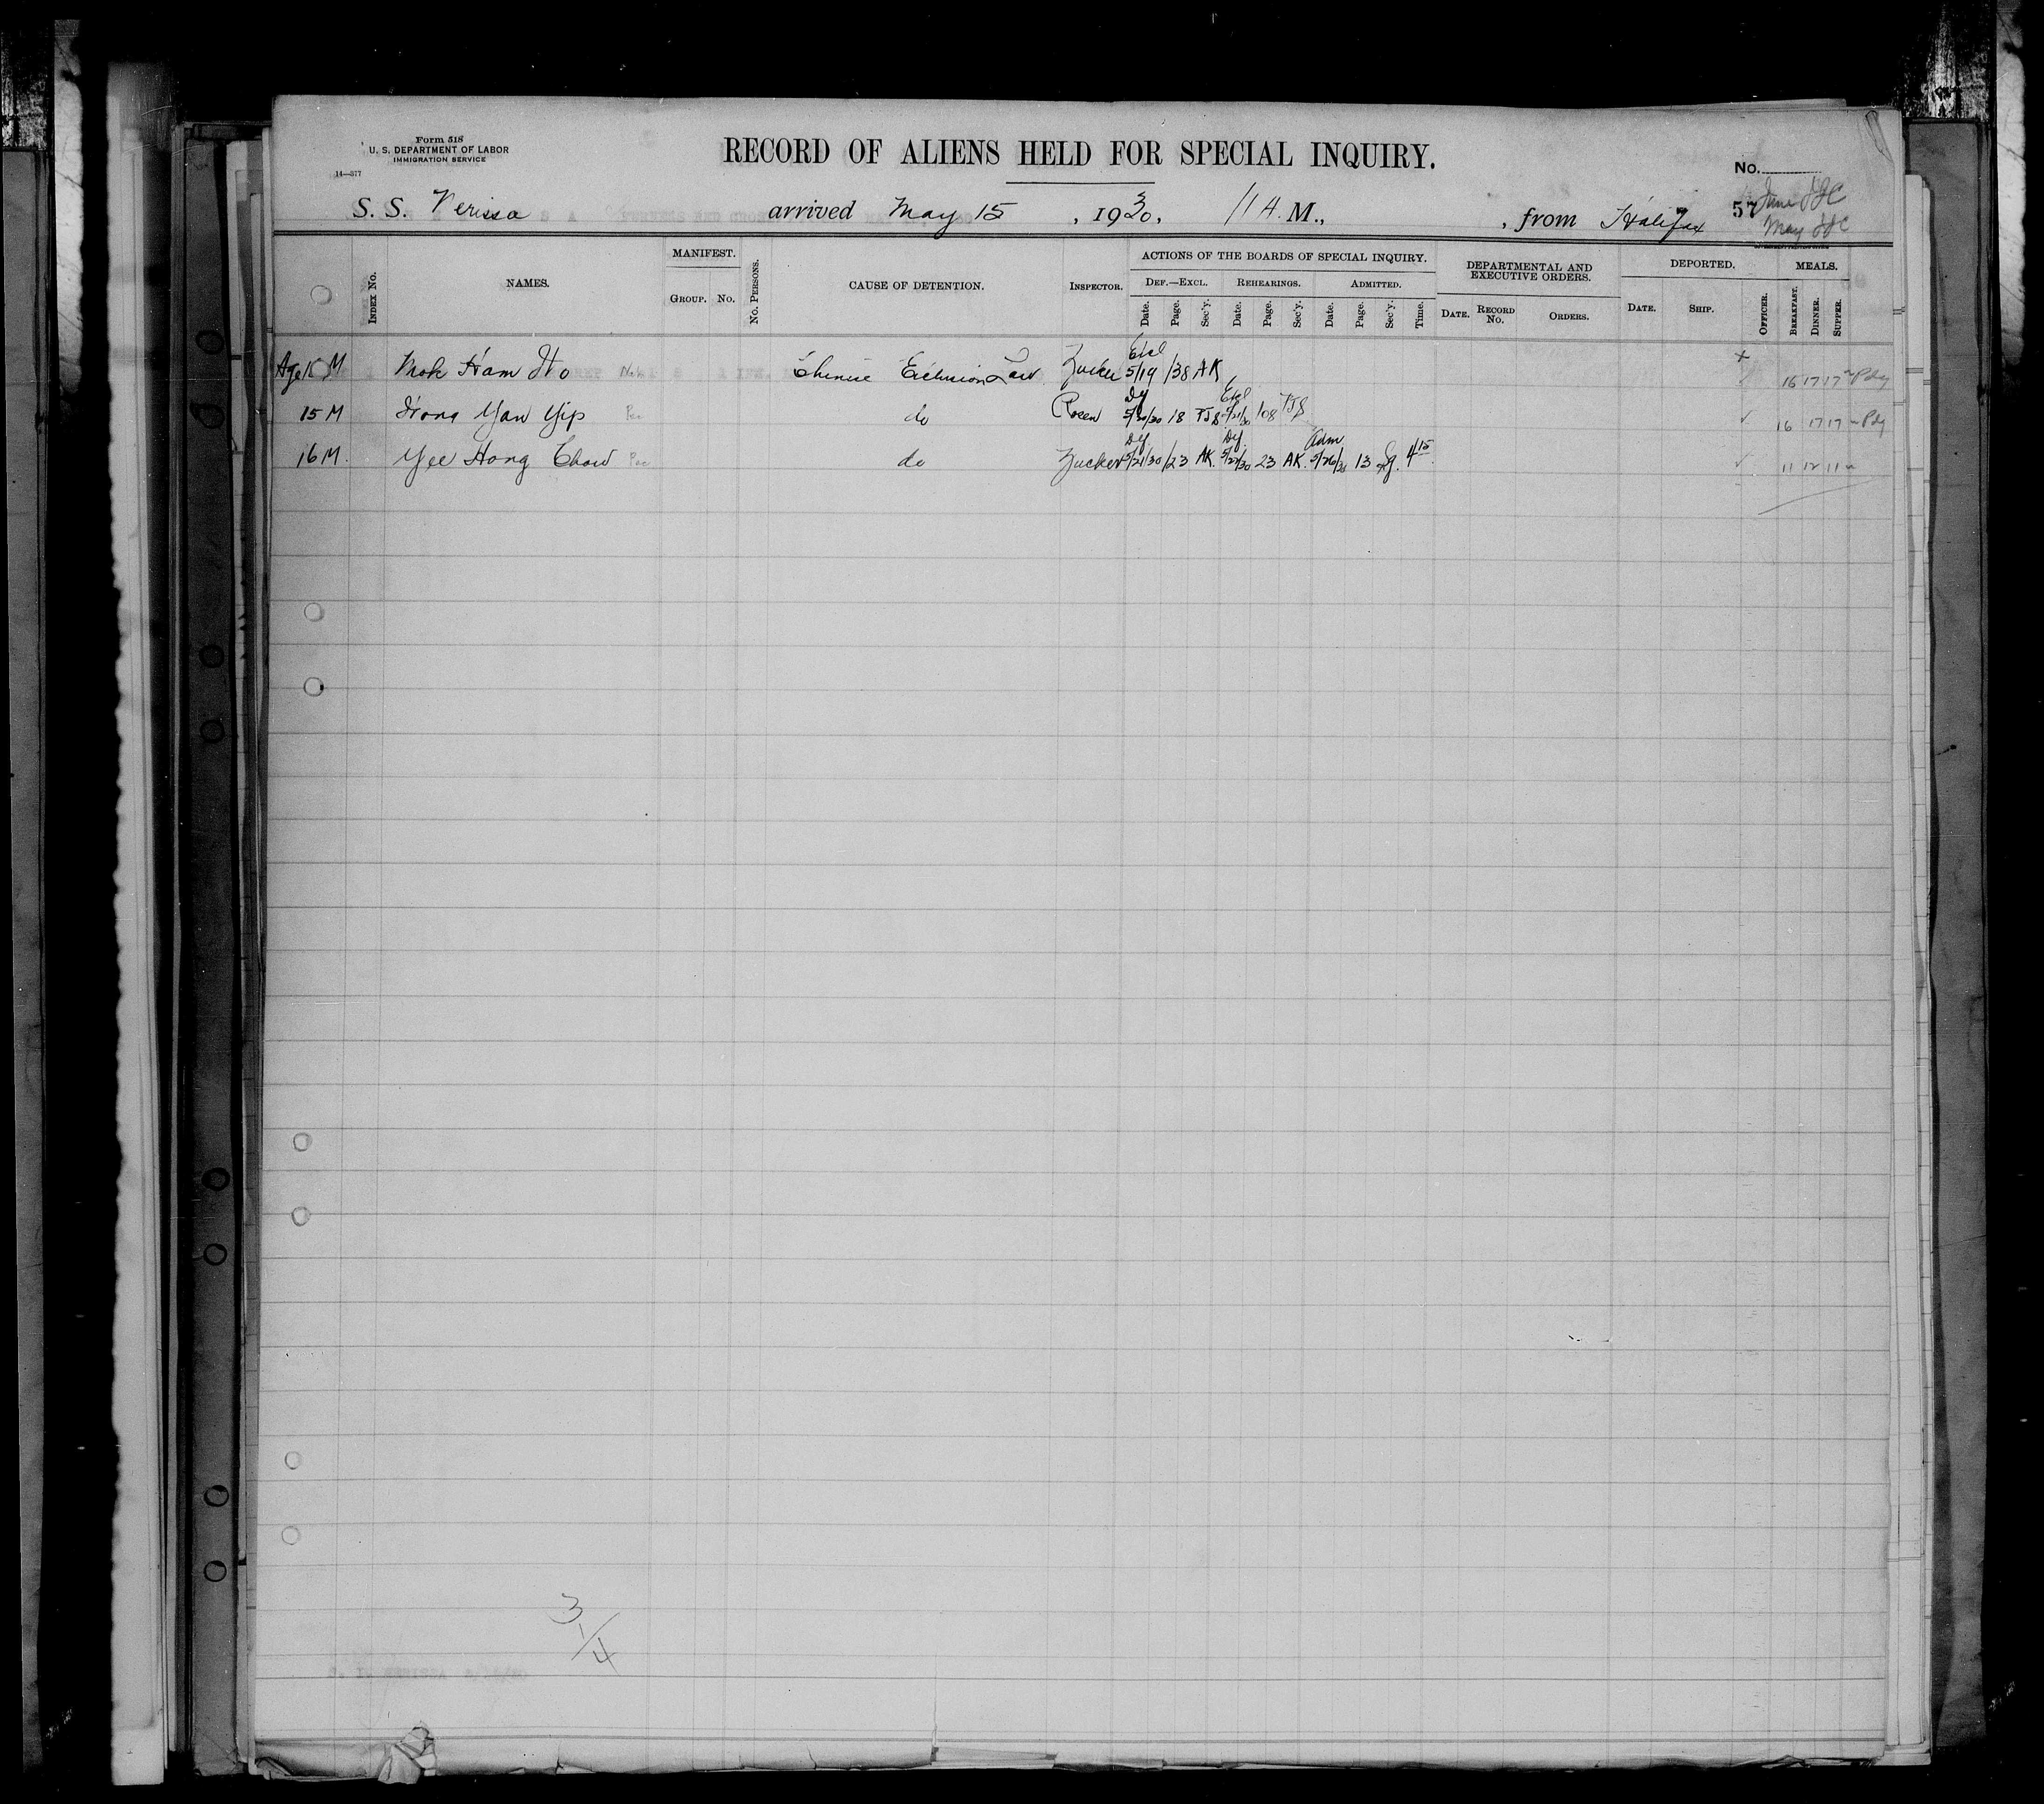 Form 518
U. S. DEPARTMENT OF LABOR
IMMIGRATION SERVICE
14—377
RECORD OF ALIENS HELD FOR SPECIAL INQUIRY.
No.
S. S. Nerissa arrived May 15, 1930, 11 A. M., , from Halifax
57
June
May
INDEX No.
NAMES.
MANIFEST.
GROUP. No.
No. PERSONS.
CAUSE OF DETENTION.
INSPECTOR.
ACTIONS OF THE BOARDS OF SPECIAL INQUIRY.
DEF.—EXCL. REHEARINGS. ADMITTED.
Date. Page. Sec'y. Date. Page. Sec'y. Date. Page. Sec'y. Time.
DEPARTMENTAL AND EXECUTIVE ORDERS.
DATE. RECORD No. ORDERS.
DEPORTED.
DATE. SHIP.
OFFICER.
MEALS.
BREAKFAST. DINNER. SUPPER.
Age 15 M Mok Ham Ho Chinese Exclusion Law Zucker Excl 5/19 138 AK 16 17 17
15 M Hong Yan Yip do Rosen Def 5/20/30 18 TJS Excl 5/21/30 108 TJS 16 17 17
16 M. Yee Hong Chow do Zucker Def 5/21/30 123 AK. Def 5/22/30 23 AK. Adm 5/26/30 13 4 15 11 12 11
3/4